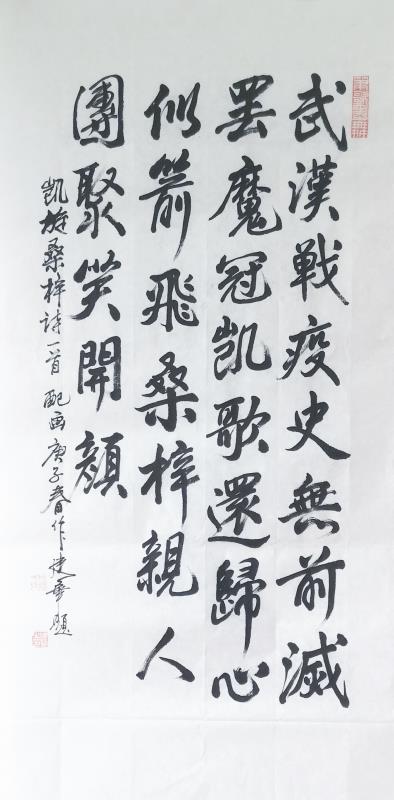 武漢戰疫史無前滅
罢魔冠凱歌還歸心
似箭飛桑梓親人
團聚笑開顏
凱旋桑梓詩一首配画庚子春作建華題